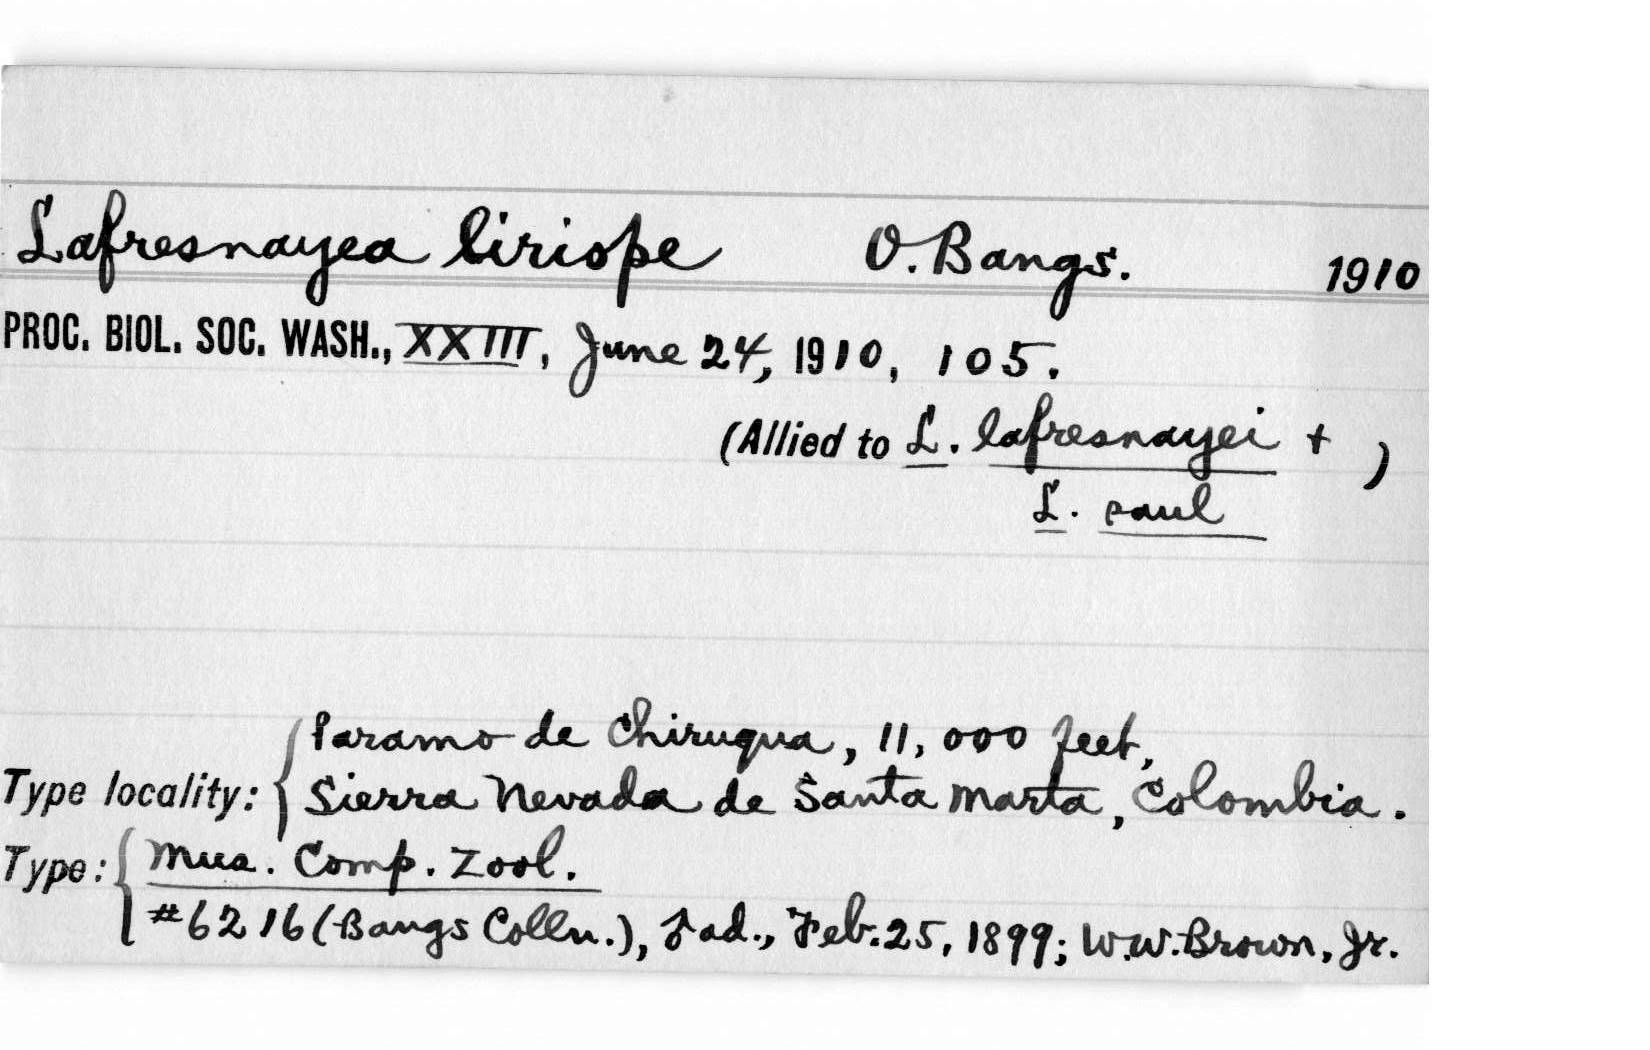 Lafresnayea liriope O. Bangs. 1910
PROC. BIOL. SOC. WASH., XXIII, June 24, 1910, 105.
(Allied to L. lafresnayei + )
L. saul
Type locality: { Paramo de Chiruqua, 11,000 feet,
Sierra Nevada de Santa Marta, Colombia.
Type: { Mus. Comp. Zool.
#6216 (Bangs Colln.), ad., Feb. 25, 1899; W.W. Brown, Jr.